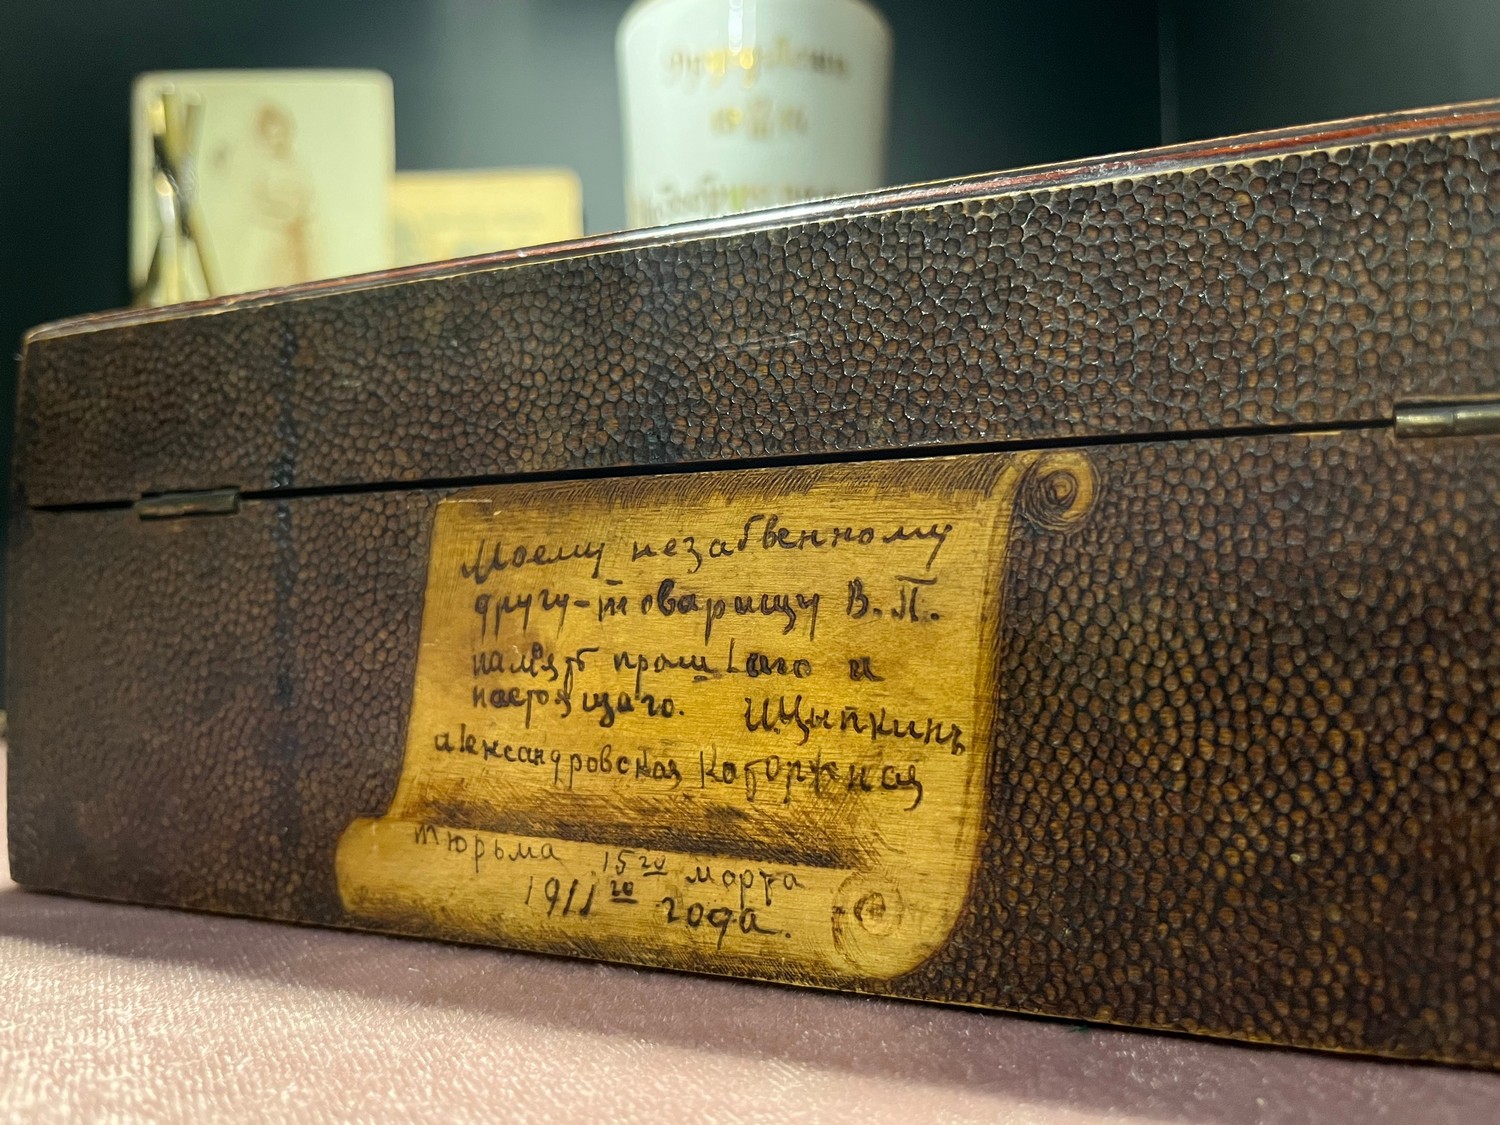 Моему незабвенному
другу-товарищу В. П.
память прошлаго и
настоящаго. Щипкинъ
Александровская Каторжная
тюрьма 15го марта
1911го года.